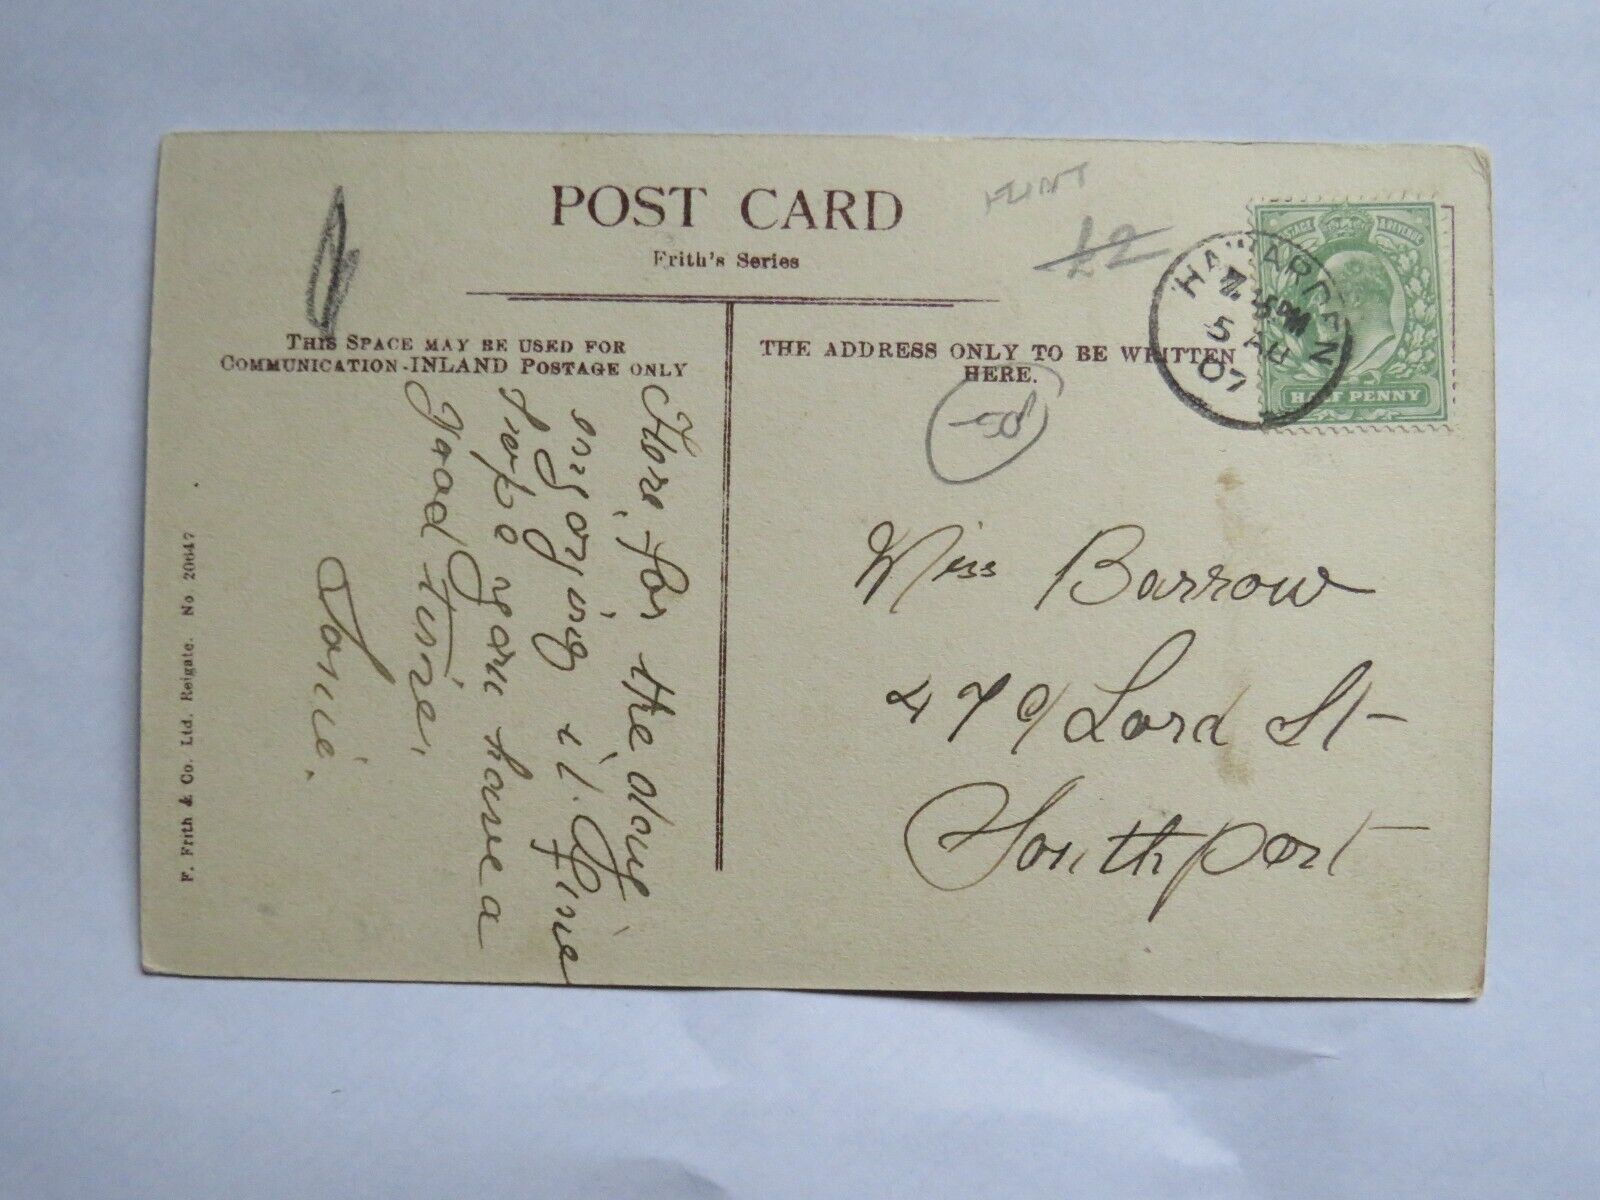 POST CARD
Frith's Series
FLINT
£2
HAWARDEN
7.5 PM
5 AU
07
POSTAGE & REVENUE
HALF PENNY
THIS SPACE MAY BE USED FOR
COMMUNICATION-INLAND POSTAGE ONLY
THE ADDRESS ONLY TO BE WRITTEN
HERE.
50
Here for the day
enjoying it. Fine
hope you have a
good time.
Miss Barrow
479 Lord St
Southport
F. Frith & Co. Ltd. Reigate. No 20647